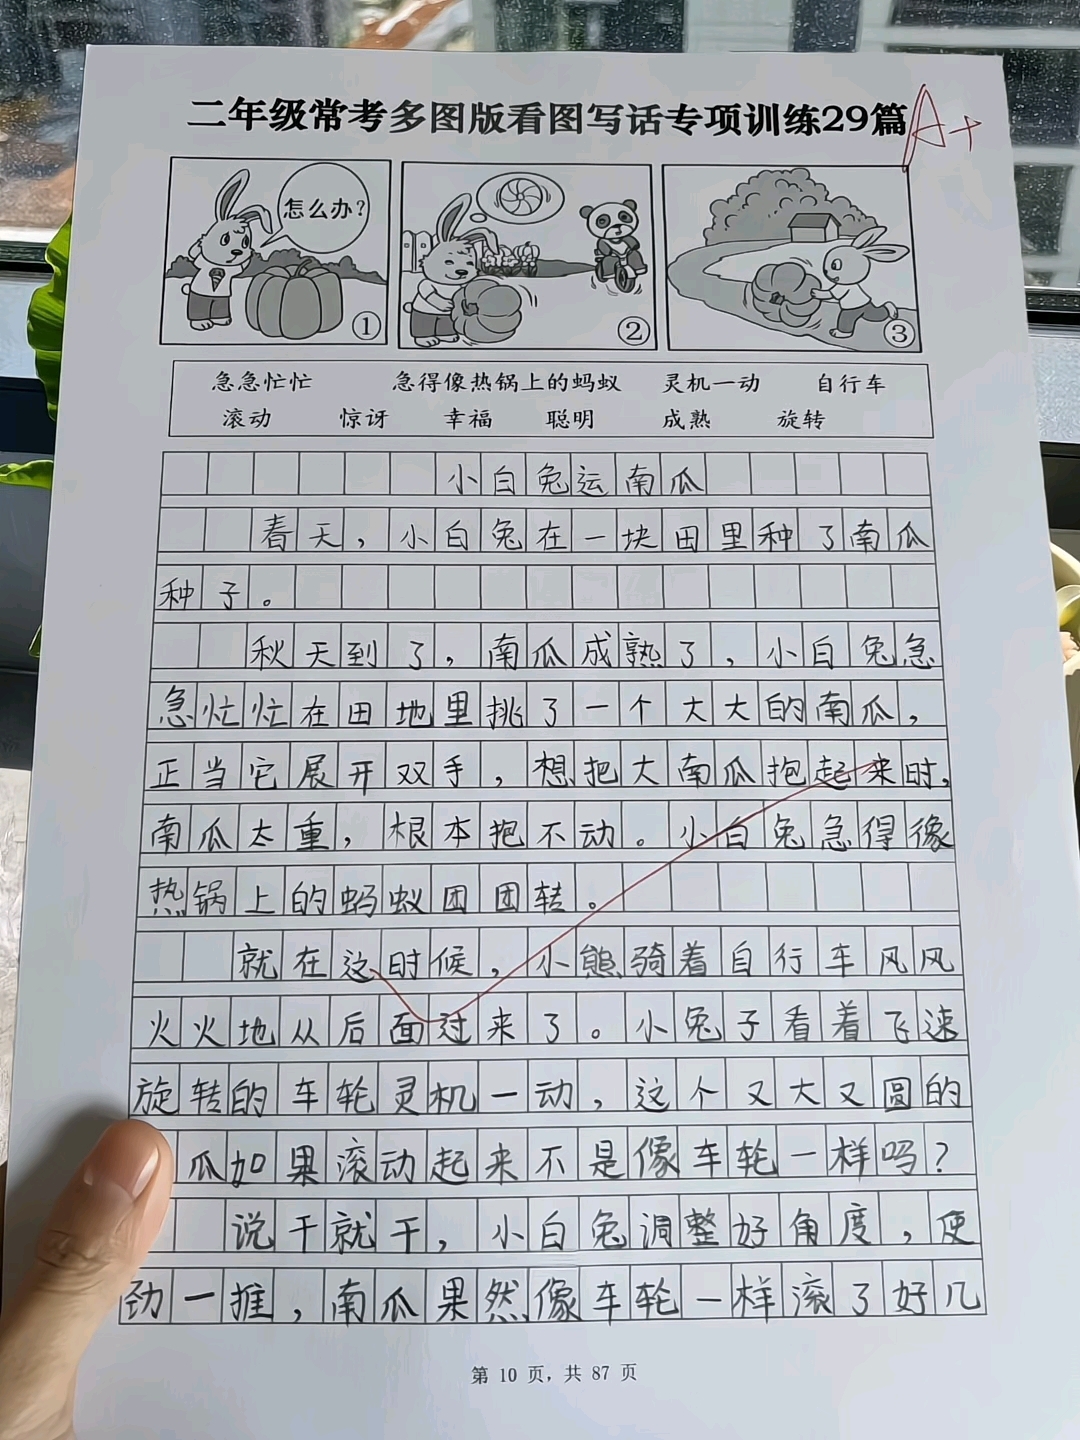 二年级常考多图版看图写话专项训练29篇
A+
怎么办?
①
②
③
急急忙忙 急得像热锅上的蚂蚁 灵机一动 自行车
滚动 惊讶 幸福 聪明 成熟 旋转
小白兔运南瓜
春天，小白兔在一块田里种了南瓜
种子。
秋天到了，南瓜成熟了，小白兔急
急忙忙在田地里挑了一个大大的南瓜，
正当它展开双手，想把大南瓜抱起来时，
南瓜太重，根本抱不动。小白兔急得像
热锅上的蚂蚁团团转。
就在这时候，小熊骑着自行车风风
火火地从后面过来了。小兔子看着飞速
旋转的车轮灵机一动，这个又大又圆的
瓜如果滚动起来不是像车轮一样吗?
说干就干，小白兔调整好角度，使
劲一推，南瓜果然像车轮一样滚了好几
第 10 页，共 87 页